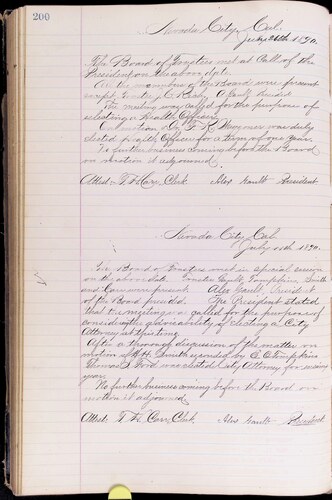 200
Nevada City, Cal.
July 26th 1890.
The Board of Trustees met at Call of the
President on the above date.
All the members of the Board were present
except Trustee Alex Gault President
The meeting was called for the purpose of
selecting a Health Officer.
On motion Dr. was duly
elected Health Officer for a term of one year.
No further business coming before the Board
on motion it adjourned.
Attest: T. H. Carr, Clerk. Alex Gault President
Nevada City, Cal.
July 1890.
The Board of Trustees met in special session
on the above date. Trustees Gault, Tompkins, Smith
and Carr were present. Alex Gault President
of the Board presided. The President stated
that the meeting was called for the purpose of
considering the advisability of electing a City
Attorney at this time.
After a thorough discussion of the matter on
motion of Smith seconded by E. Tompkins
Thomas S. Ford was elected City Attorney for ensuing
year.
No further business coming before the Board on
motion it adjourned.
Attest: T. H. Carr, Clerk, Alex Gault President